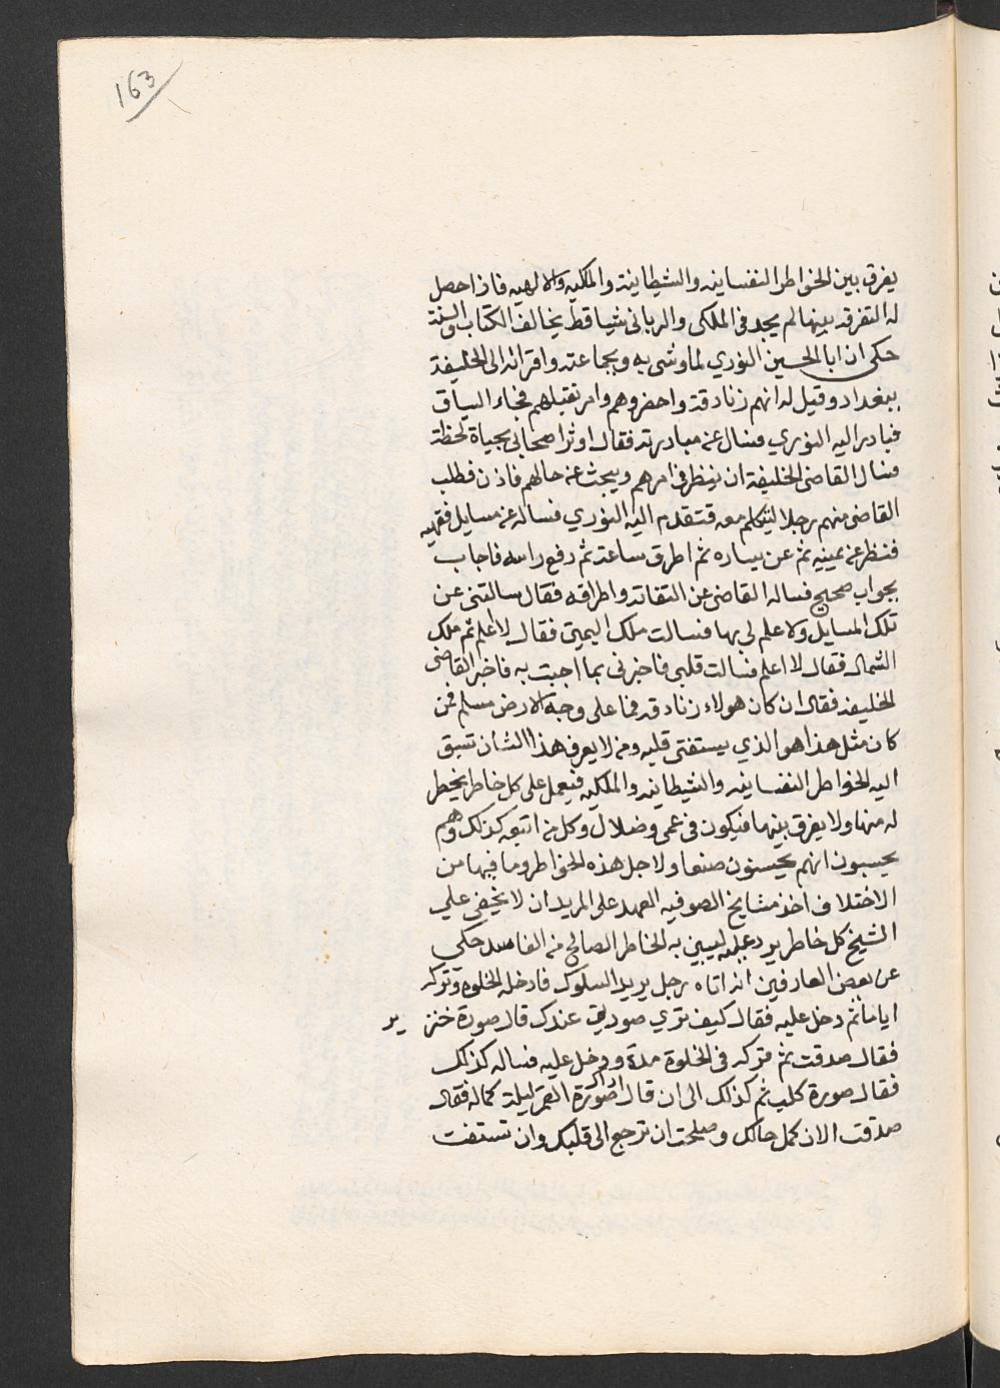 163
يفرق بين الخواطر النفسانيه والشيطانية والملكيه والالهيه فاذا حصل
له التفرقه بينها لم يجد في الملكي والرباني شيا قط يخالف الكتاب والسنة
حكى ان ابا الحسين النوري لما وشى به وبجماعته واقرانه الى الخليفة
ببغداد وقيل له انهم زنادقة واحضروهم وامر بقتلهم فجاء السياق
فبادر اليه النوري فسال عن مبادرته فقال اوثر اصحابي بحياة لحظة
فسال القاضي الخليفة ان ينظر في امرهم ويبحث عن حالهم فاذن فطلب
القاضي منهم رجلا ليتكلم معه فتقدم اليه النوري فساله عن مسايل فقهيه
فنظر عن يمينه ثم عن يساره ثم اطرق ساعة ثم رفع راسه فاجاب
بجواب صحيح فساله القاضي عن التفاته واطراقه فقال سالتني عن
تلك المسايل ولا علم لي بها فسالت ملك اليمين فقال لا اعلم ثم ملك
الشمال فقال لا اعلم فسالت قلبي فاخبرني بما اجبت به فاخبر القاضي
الخليفه فقال ان كان هولاء زنادقه فما على وجه الارض مسلم فمن
كان مثل هذا هو الذي يستفتى قلبه ومن لا يعرف هذا الشان تسبق
اليه الخواطر النفسانيه والشيطانيه والملكيه فيعمل على كل خاطر يخطر
له منها ولا يفرق بينها فيكون في عمى وضلال وكل من اتبعه كذلك وهم
يحسبون انهم يحسنون صنعا ولاجل هذه الخواطر وما فيها من
الاختلاف اخذ مشايخ الصوفيه العهد على المريد ان لا يخفي علي
الشيخ كل خاطر يرد عليه ليبين به الخاطر الصالح من الفاسد حكي
عن بعض العارفين انه اتاه رجل يريد السلوك فادخله الخلوه وتركه
اياما ثم دخل عليه فقال كيف تري صورتي عندك قال صورة خنزير
فقال صدقت ثم تركه في الخلوة مدة ودخل عليه فساله كذلك
فقال صورة كلب ثم كذلك الى ان قال اراك صورة القمر ليلة كماله فقال
صدقت الان كمل حالك وصلحت ان ترجع الى قلبك وان تستفت